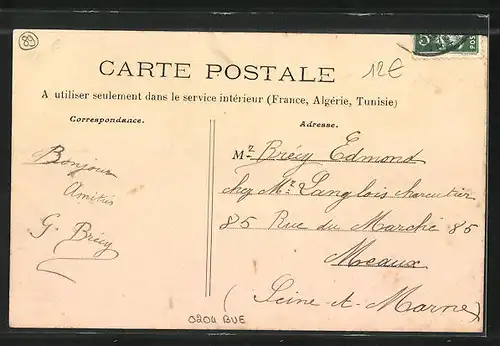 89
CARTE POSTALE
12€
A utiliser seulement dans le service intérieur (France, Algérie, Tunisie)
Correspondance.
Adresse.
Bonjour
Amitiés
G. Brécy
Mr Brécy Edmond
chez Mr Langlois charcutier
85 Rue du Marché 85
Meaux
(Seine-et-Marne)
0204 BUE